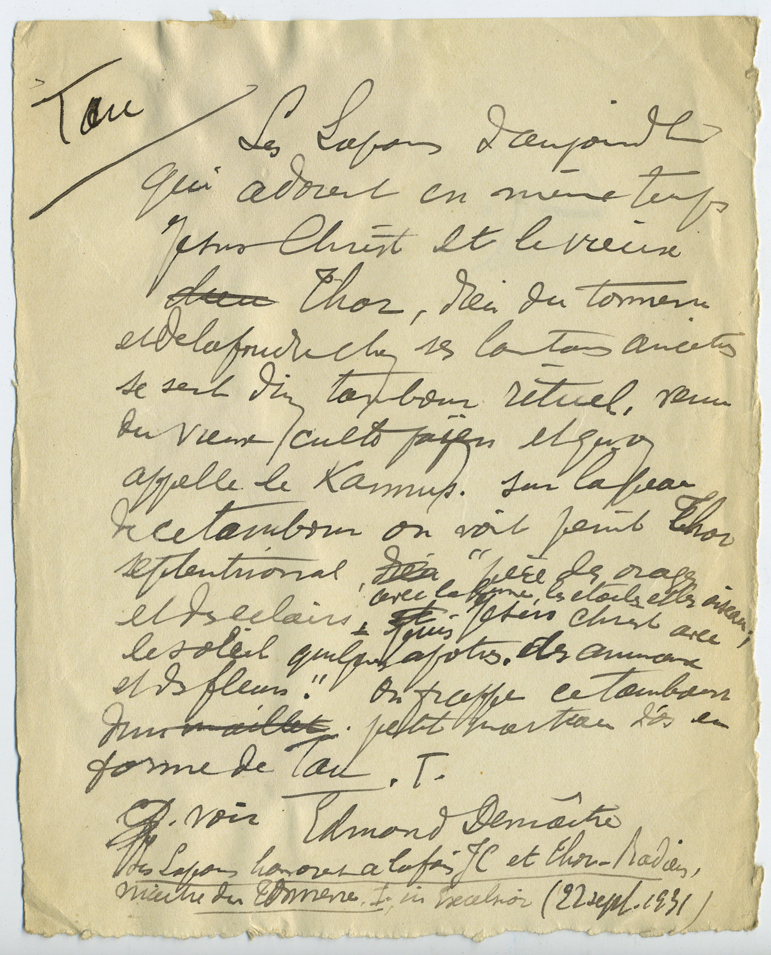 Tau
Les Lapons d'aujourd'hui
qui adorent en même temps
Jésus Christ et le vieux
dieu Thor, dieu du tonnerre
et de la foudre chez ses lointains ancêtres
se sert d'un tambour rituel, venu
du vieux culte païen et qu'on
appelle le Kannus. Sur la peau
de ce tambour on voit peint Thor
septentrional, "père des orages
et des éclairs, avec la lune, les étoiles et les oiseaux;
puis Jésus Christ avec
le soleil quelques apôtres, des animaux
et des fleurs." On frappe ce tambour
d'un maillet petit marteau d'os en
forme de Tau. T.
voir Edmond Demaître
Les Lapons honorent à la fois JC et Thor-Radien,
maître du Tonnerre, I, in Excelsior (22 sept. 1931)